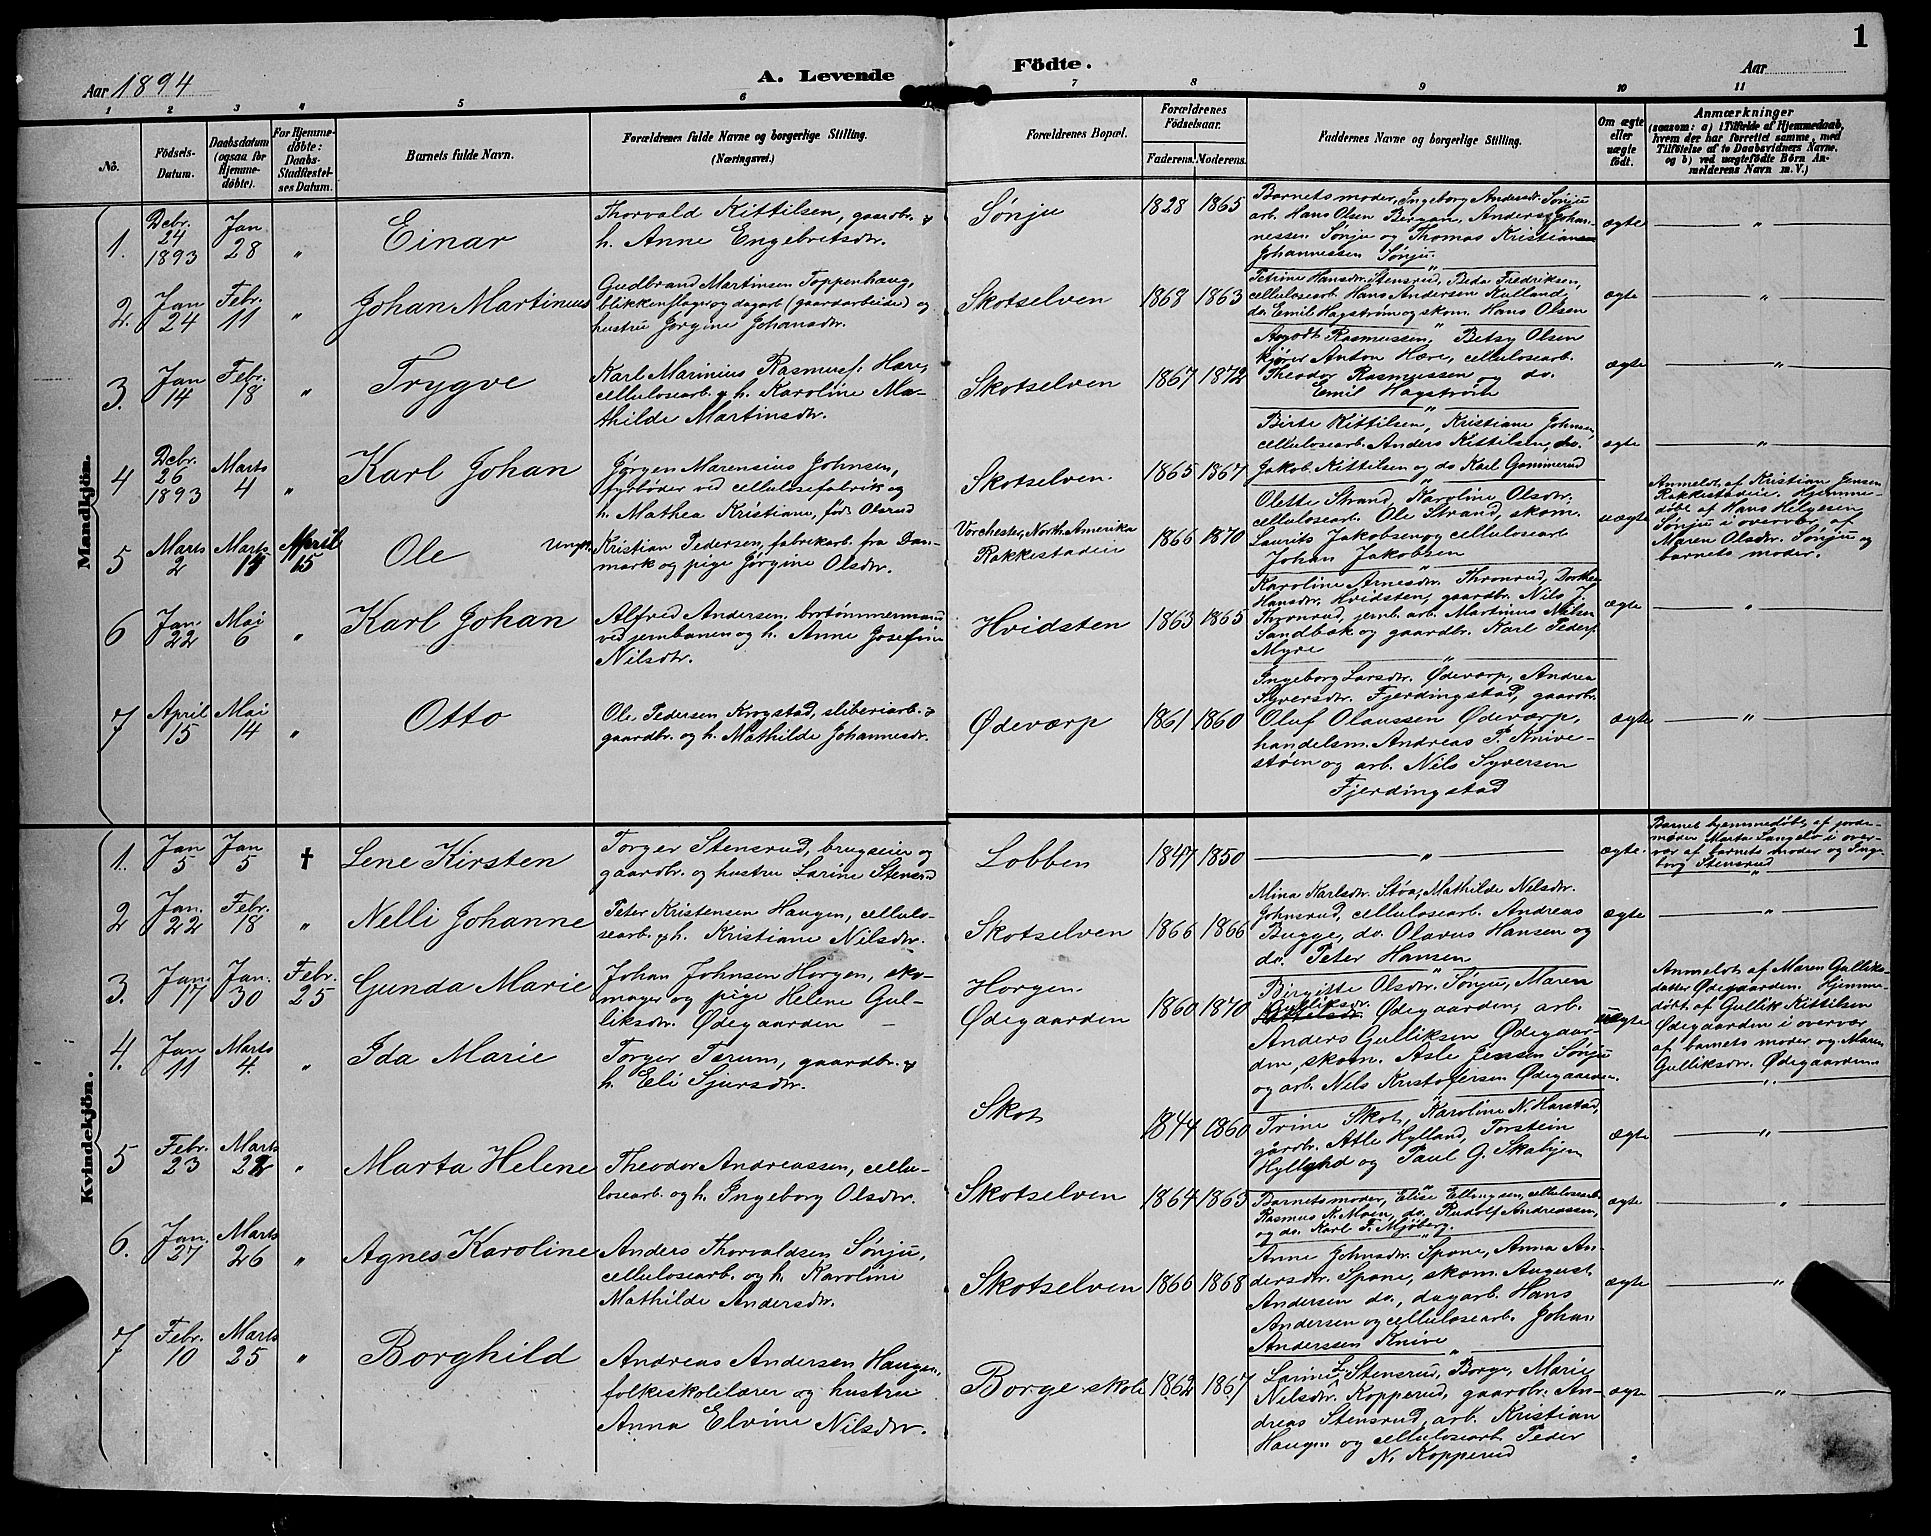 1
Aar 1894
A. Levende Födte.
Aar
1 2 3 4 5 6 7 8 9 10 11
No.
Födsels-
Datum.
Daabsdatum
(ogsaa for
Hjemme-
døbte).
For Hjemme-
døbte:
Daabs-
Stadfæstel-
ses Datum.
Barnets fulde Navn.
Forældrenes fulde Navne og borgerlige Stilling.
(Næringsvei.)
Forældrenes Bopæl.
Forældrenes
Födselsaar.
Faderens. Moderens.
Faddernes Navne og borgerlige Stilling.
Om ægte
eller
uægte
født.
Anmærkninger
(saasom: a) i Tilfælde af Hjemmedaab,
hvem der har forrettet samme, med
Tilföielse af to Daabsvidners Navne,
og b) ved uægtefödte Börn An-
melderens Navn m. V.)
Mandkjön.
1.
Debr.
24
1893
Jan
28
"
Einar
Thorvald Kittilsen, gaardbr. &
h. Anne Engebretsdr.
Sønju
1828 1865
Barnets moder, Ingeborg Andersdr. Sønju
arb. Hans Olsen Bergan, Anders Johan-
nessen Sønju og Thomas Kristiansen
Johannessen Sønju.
ægte
"
2.
Jan
24
Febr.
11
"
Johan Martinus
Gudbrand Martinsen Toppenhaug,
blikkenslager og dagarb (gaardarbeider) og
hustru Jørgine Johansdr.
Skotselven
1868 1863
Petrine Hansdr. Stensrud, Beda Fredriksen,
cellulosearb. Hans Andersen Hulland,
do. Emil Hagstrøm og skom. Hans Olsen
ægte
"
3.
Jan
14
Febr.
18
"
Trygve
Karl Marinius Rasmuss. Hære,
cellulosearb. & h. Karoline Ma-
thilde Martinsdr.
Skotselven
1867 1872
Rasmussen, Betsy Olsen
kjører Anton Hære, cellulosearb.
Theodor Rasmussen og do.
Emil Hagstrøm
ægte
"
4
Debr.
26
1893
Marts
4
"
Karl Johan
Jørgen Marensius Johnsen,
fyrbøder ved cellulosefabrik og
h. Mathea Kristiane, født Olsrud
Skotselven.
1865 1867
Birte Kittilsen, Kristiane Johnsen,
cellulosearb. Anders Kittilsen, do.
Jakob Kittilsen og do Karl Gommerud
ægte
"
5
Marts
2
Marts
15
April
15
Ole
Ungk. Kristian Pedersen, fabrikarb. fra Dan-
mark og pige Jørgine Olsdr.
Vorchester, North Amerika
Rakkestadeie
1866 1870
Olette Strand, Karoline Olsdr.
cellulosearb. Ole Strand, skom.
Laurits Jakobsen og cellulosearb
Johan Jakobsen
uægte
Anmeldt af Kristian Jensen
Rakkestadeie. Hjemme-
døbt af Hans Helgesen
Sønju i overvær af
Maren Olsdr. Sønju og
barnets moder.
6
Jan
22
Mai
6
"
Karl Johan
Alfred Andersen, brotømmermand
ved jernbanen og h. Anne Josefine
Nilsdr.
Hvidsten
1863 1865
Karoline Arnesdr. Thronrud, Dorthea
Hansdr. Hvidsten, gaardbr. Nils J.
Thronrud, jernb. arb. Martinus Nilsen
Sandbak og gaardbr. Karl Peders.
Myre
ægte
"
7
April
15
Mai
14
"
Otto
Ole Pedersen Krogstad, sliberiarb. &
gaardbr. og h. Mathilde Johannesdr.
Ødeværp
1861 1860
Ingeborg Larsdr. Ødeværp, Andrea
Syversdr. Fjerdingstad, gaardbr.
Oluf Olaussen Ødeværp,
handelsm. Andreas P. Knive-
støen og arb. Nils Syversen
Fjerdingstad
ægte
"
Kvindekjön.
1.
Jan
5
Jan
5
†
Lene Kirsten
Torger Stensrud, brugseier og
gaardbr. og hustru Larine Stensrud
Lobben
1847 1850
"
ægte.
Barnet hjemmedøbt af jorde-
moder Marta Langelo i over-
vær af barnets moder og Inge-
borg Stensrud
2
Jan.
22
Febr.
18
"
Nelli Johanne
Peter Kristensen Haugen, cellulo-
searb. & h. Kristiane Nilsdr.
Skotselven
1866 1866
Mina Karlsdr. Støa, Mathilde Nilsdr.
Johnsrud, cellulosearb. Andreas
Bugge, do. Olavus Hansen og
do. Peter Hansen
ægte
"
3.
Jan
17
Jan.
30
Febr.
25
Gunda Marie
Johan Johnsen Horgen, sko-
mager og pige Helene Gul-
liksdr. Ødegaarden
Horgen
Ødegaarden
1860 1870
Birgitte Olsdr. Sønju, Maren
Gulliksdr. Ødegaarden, arb.
Anders Gulliksen Ødegaar-
den, skom. Asle Jenssen Sønju
og arb. Nils Kristofersen Ødegaarden.
uægte
Anmeldt af Maren Gulliks-
datter Ødegaarden. Hjemme-
døbt af Gullik Kittilsen
Ødegaarden i overvær
af barnets moder og Maren
Gulliksdr. Ødegaarden.
4.
Jan
11
Marts
4.
"
Ida Marie
Torger Terum, gaardbr. &
h. Eli Sjursdr.
Skot
1844 1860
Trine Skot, Karoline N. Harstad,
gårdbr. Atle Hylland, Torstein
Hylland og Paul G. Skabjen
ægte
"
5
Febr.
23
Marts
22
"
Marta Helene
Theodor Andreassen, cellu-
losearb. og h. Ingeborg Olsdr.
Skotselven
1864 1863
Barnets moder, Elise Ellingsen, cellulosearb.
Rasmus K. Moen, do. Rudolf Andreassen,
og do. Karl F. Mjøberg.
ægte
"
6.
Jan.
27
Marts
26
"
Agnes Karoline
Anders Thorvaldsen Sønju,
cellulosearb. og h. Karoline
Mathilde Andersdr.
Skotselven
1866 1868
Anne Johnsdr. Spone, Anna An-
dersdr. Spone, skom. August
Andersen do., dagarb. Hans
Andersen og cellulosearb. Johan
Anderssen Knive
ægte
"
7
Febr.
10
Marts
25
"
Borghild
Andreas Andersen Haugen,
folkeskolelærer og hustru
Anna Elvine Nilsdr.
Borge skole
1862 1867
Larine L. Stensrud, Borge, Marie
Nilsdr. Kopperud, gaardbr. An-
dreas Stensrud, arb. Kristian
Haugen og cellulosearb. Peder
N. Kopperud
ægte
"